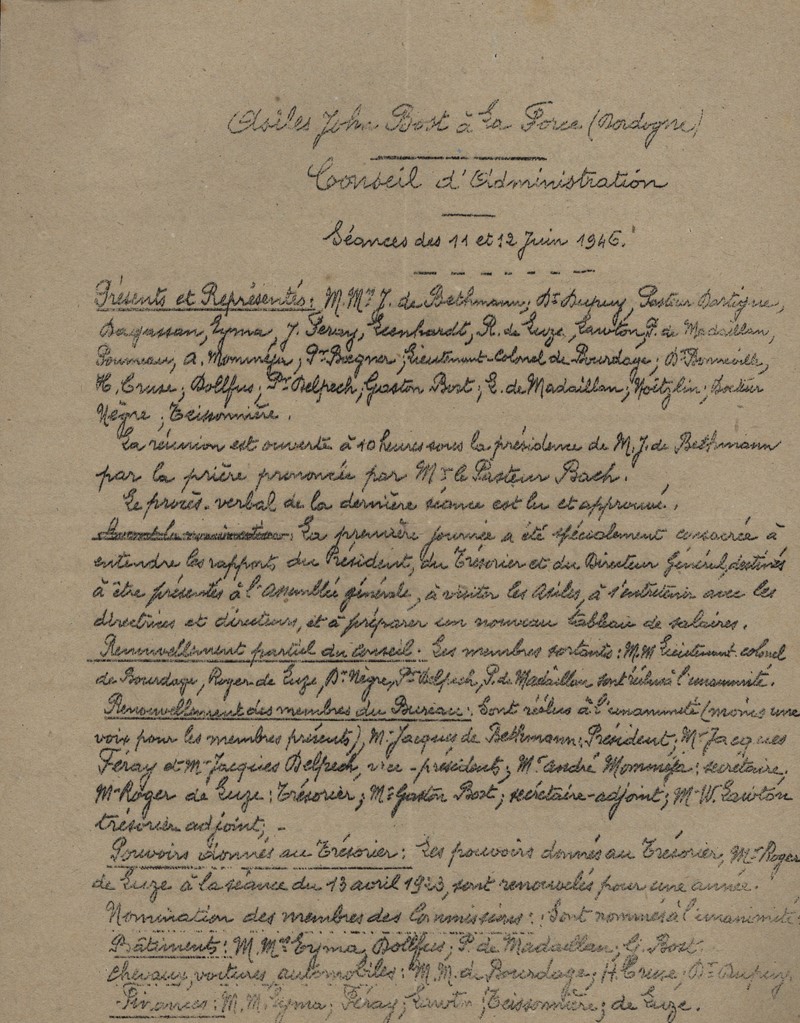 Asiles John Bost à La Force (Dordogne)
Conseil d'Administration
Séances des 11 et 12 Juin 1946.
Présents et Représentés: M.Mrs J. de Bethmann; Dr Dupuy, Pasteur Dartigue,
Dagassan, Eyma, J. Feray, Leenhardt, R. de Luze, Lawton, P. de Madaillan,
Poumeau, A. Momméja; Pr Boegner; Lieutenant-Colonel de Bourdage; Dr Bonneville,
H. Cruse; Dollfus; Pr Delpech; Gaston Bost; E. de Madaillan; Noetzlin; Docteur
Nègre; Teissonnière.
La réunion est ouverte à 10 heures sous la présidence de M. J. de Bethmann
par la prière prononcée par Mr le Pasteur Bach.
Le procès-verbal de la dernière séance est lu et approuvé.
La première journée a été spécialement consacrée à
entendre les rapports du Président, du Trésorier et du Directeur Général, destinés
à être présentés à l'assemblée générale, à visiter les Asiles, à s'entretenir avec les
directrices et directeurs, et à préparer un nouveau tableau de salaires.
Renouvellement partiel du Conseil: Les membres sortants: M.M Lieutenant-colonel
de Bourdage, Roger de Luze, Dr Nègre, Pr Delpech, P. de Madaillan sont réélus à l'unanimité.
Renouvellement des membres du Bureau: Sont réélus à l'unanimité (moins une
voix pour les membres présents), Mr Jacques de Bethmann: Président; Mr Jacques
Feray et Mr Jacques Delpech, vice-présidents; Mr André Momméja: secrétaire;
Mr Roger de Luze: Trésorier; Mr Gaston Bost; secrétaire-adjoint; Mr W. Lawton
trésorier adjoint; -
Pouvoirs donnés au Trésorier: Les pouvoirs donnés au Trésorier, Mr Roger
de Luze à la séance du 13 avril 1923, sont renouvelés pour une année.
Nomination des membres des Commissions: Sont nommés à l'unanimité:
Bâtiments: M.Mrs Eyma, Dollfus; P. de Madaillan, G. Bost
chevaux, voitures automobiles: M.M. de Bourdage; H. Cruse; Dr Dupuy,
Finances: M.M. Eyma; Féray; Lawton; Teissonnière; de Luze.